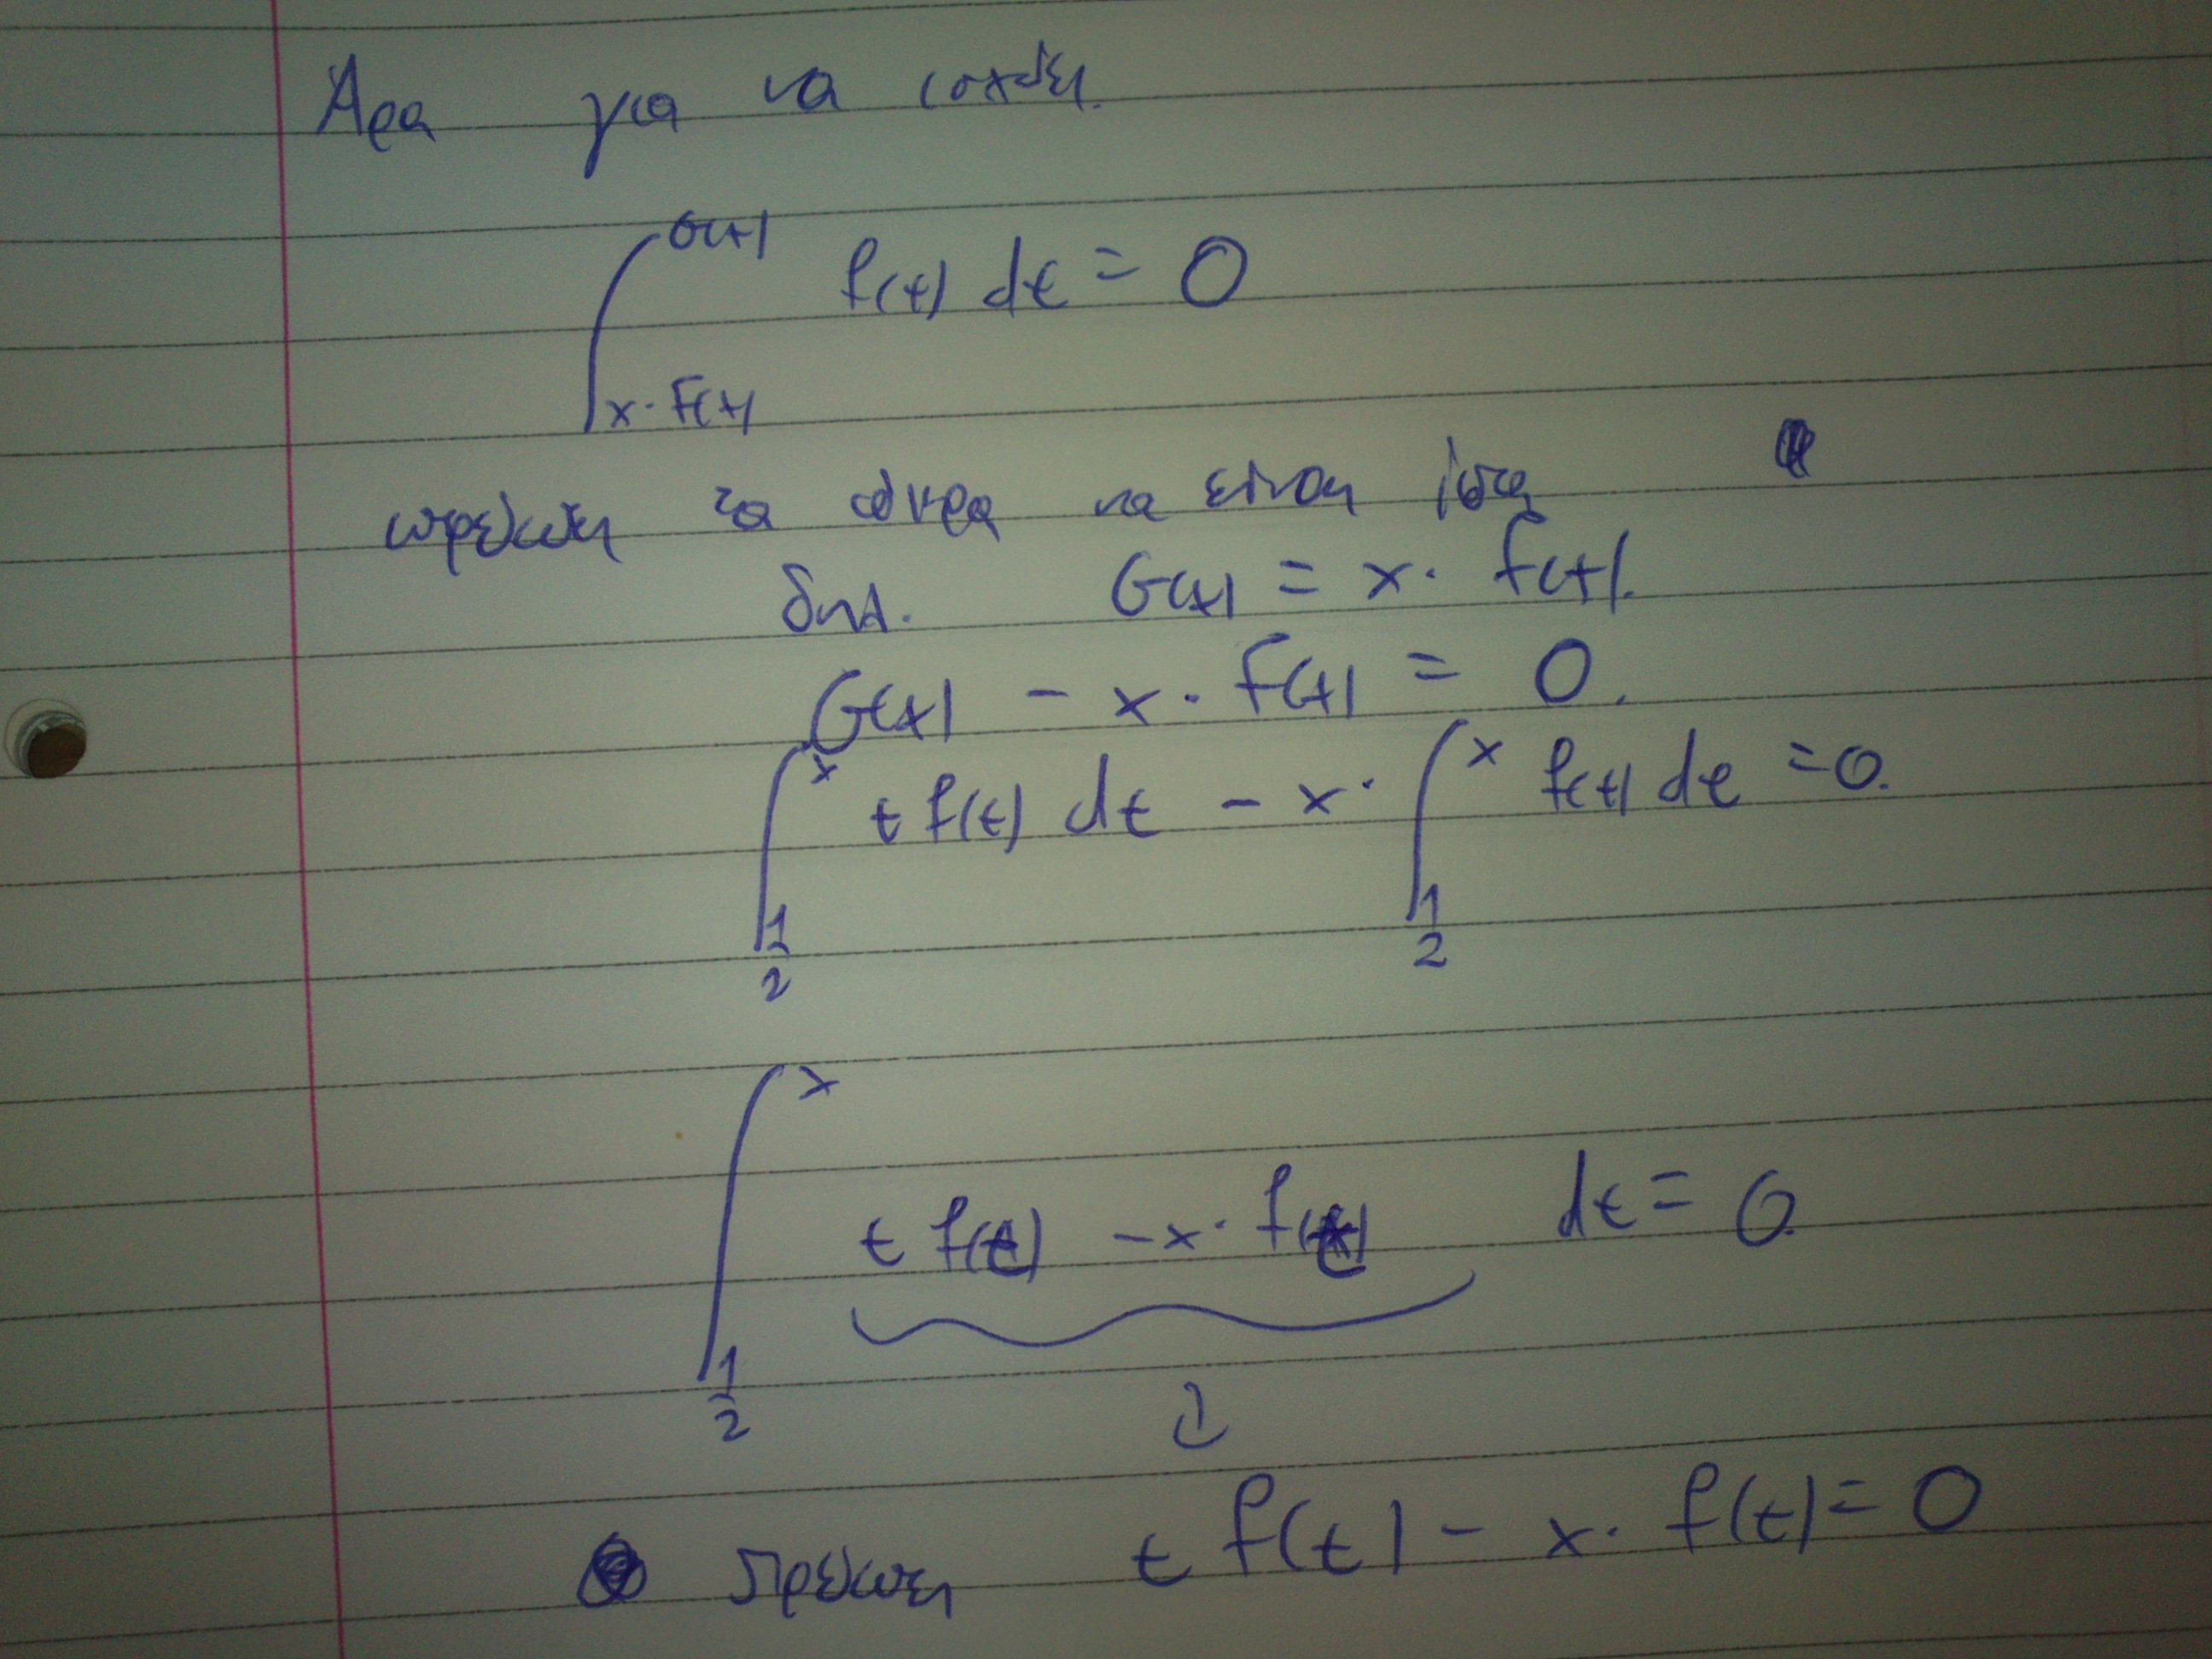 Άρα για να ισχύει.
∫_{x·F(x)}^{G(x)} f(t) dt = 0
πρέπει τα άκρα να είναι ίσα
δηλ. G(x) = x · F(x).
G(x) - x · F(x) = 0.
∫_{1/2}^{x} t f(t) dt - x · ∫_{1/2}^{x} f(t) dt = 0.
∫_{1/2}^{x} t f(t) - x · f(t) dt = 0.
πρέπει t f(t) - x · f(t) = 0